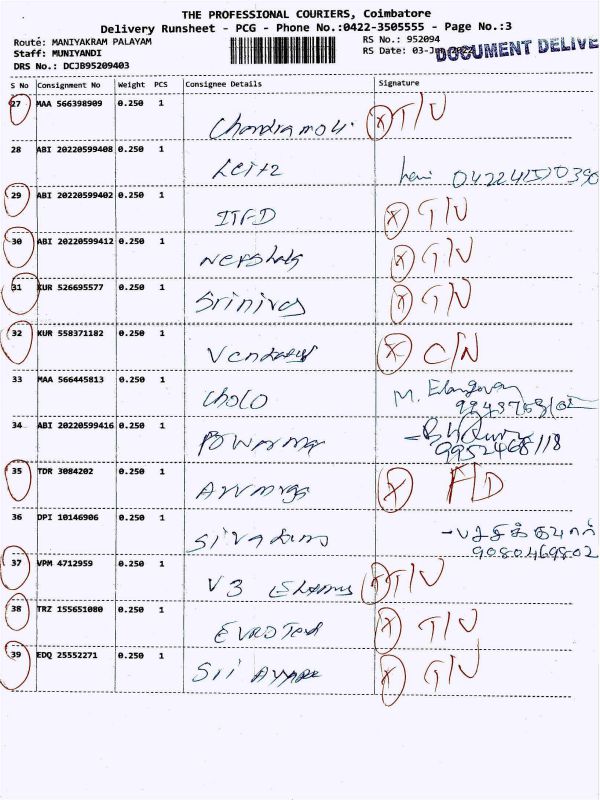 THE PROFESSIONAL COURIERS, Coimbatore
Delivery Runsheet - PCG - Phone No.:0422-3505555 - Page No.:3
Route: MANIYAKRAM PALAYAM RS No.: 952094
Staff: MUNIYANDI RS Date: 03-Jun-2022
DOCUMENT DELIVE
DRS No.: DCJB95209403
S No Consignment No Weight PCS Consignee Details Signature
27 MAA 566398909 0.250 1
Chandramoli X T/N
28 ABI 20220599408 0.250 1
29 ABI 20220599402 0.250 1
ITFD X T/N
30 ABI 20220599412 0.250 1
X T/N
31 KUR 526695577 0.250 1
Srinivas X T/N
32 KUR 558371182 0.250 1
X C/N
33 MAA 566445813 0.250 1
Cholo M. Elangovan
34 ABI 20220599416 0.250 1
9952468118
35 TDR 3084202 0.250 1
X F/D
36 DPI 10146906 0.250 1
9080469802
37 VPM 4712959 0.250 1
V3 X T/N
38 TRZ 155651080 0.250 1
X T/N
39 EDQ 25552271 0.250 1
Sri X T/N